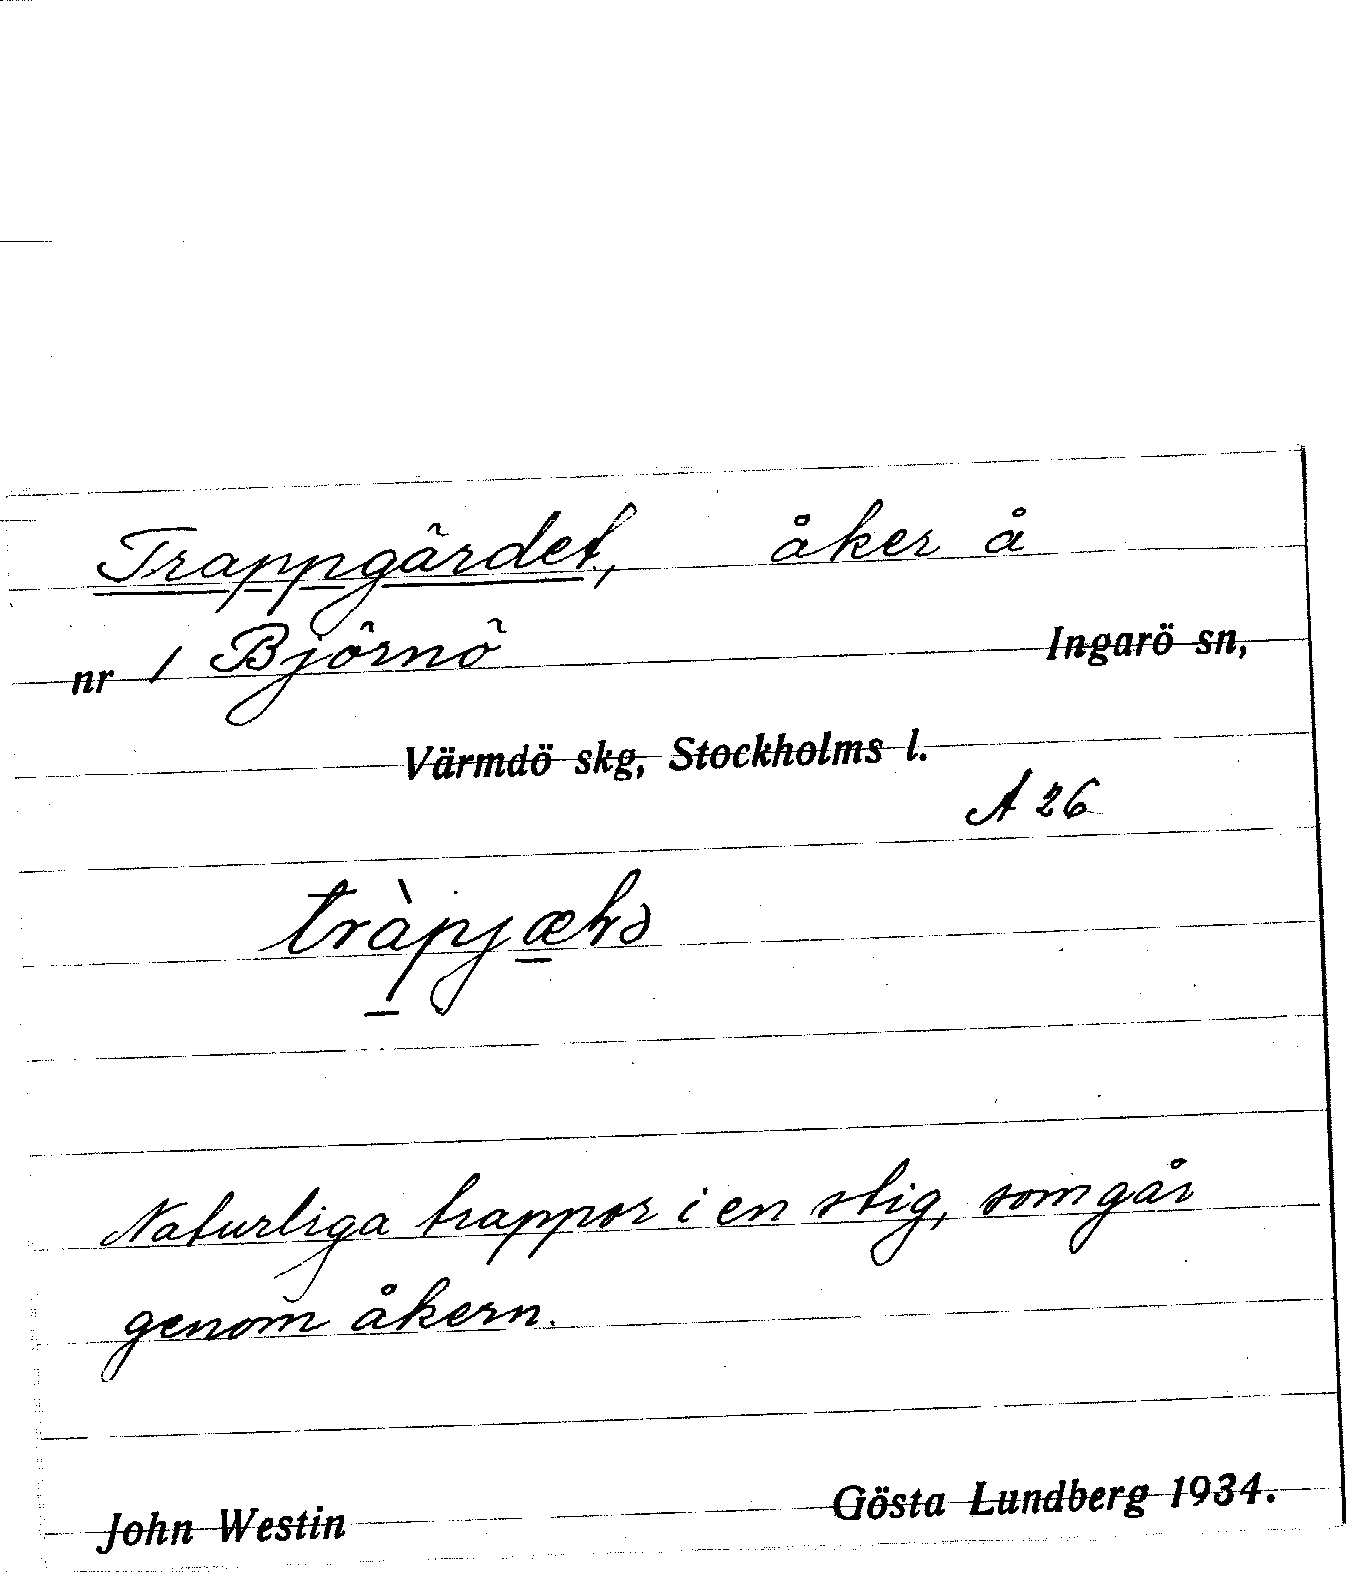 Trappgärdet, åker å
nr 1 Björnö Ingarö sn,
Värmdö skg, Stockholms l.
A 26
Naturliga trappor i en stig, som går
genom åkern.
John Westin Gösta Lundberg 1934.